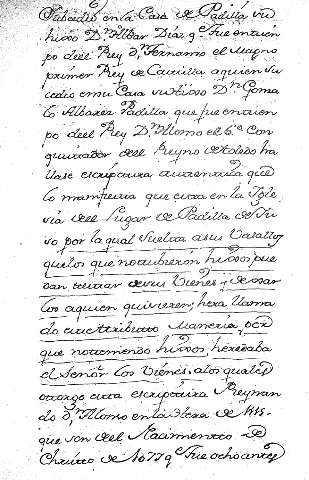 Subcedio en la Casa de Padilla su
hijo Dn. Albar Diaz qe. fue en tiem
po deel Rey dn. Fernando el Magno
primer Rey de Castilla a quien su
cedio en su Casa su hijo Dn. Goma
lo Albarez Padilla que fue en tiem
po deel Rey Dn. Alonso el 6o. Con
quistador deel Reyno de toledo ha
llase escriptura autentica que
lo manifiesta que esta en la Igle
sia deel Lugar de Padilla de Yu
so por la qual suelta a sus Vasallos
quelos que no tubieren hijos pue
dan testar de sus Vienes y dexar
los a quien quisieren; hera llama
do este tributo Maneria, por
que no teniendo hijos, heredaba
el Señor los Vienes. a los quales
otorgo esta escriptura Reynan
do dn. Alonso en la Hera de 1115
que son deel Nacimiento de
Christo de 1077 qe. fue ocho antes